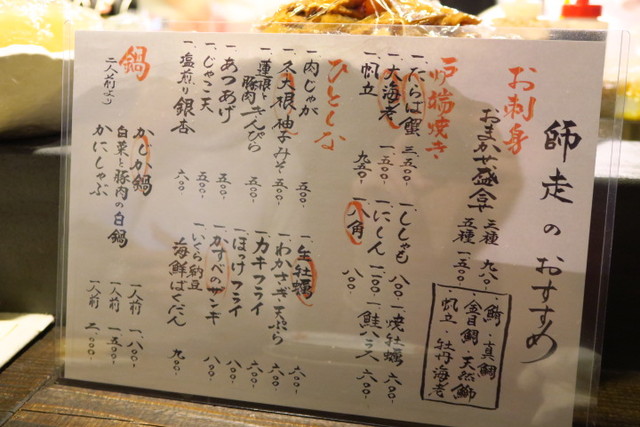 師走のおすすめ
お刺身
おまかせ盛合や
三種 九八〇
五種 一五〇〇
鰤・真鯛
金目鯛・天然鰤
帆立・牡丹海老
炉端焼き
一、たらば蟹 三五〇〇
一、大海老 一五〇〇
一、帆立 九五〇
一、ししゃも 八〇〇
一、にしん 一二〇〇
一、八角 八〇〇
一、焼牡蠣 六〇〇
一、鮭ハラス 六〇〇
ひとしな
一、肉じゃが 五〇〇
一、久大根柚子みそ 五〇〇
一、蓮根と豚肉きんぴら 五〇〇
一、あつあげ 五〇〇
一、じゃこ天 五〇〇
一、塩煎り銀杏 六〇〇
一、生牡蠣 六〇〇
一、わかさぎ天ぷら 六〇〇
一、カキフライ 六〇〇
一、ほっけフライ 八〇〇
一、かすべのザンギ 八〇〇
一、いくら納豆海鮮ばくだん 九〇〇
鍋
二人前より
かじか鍋 一人前 一八〇〇
白菜と豚肉の白鍋 一人前 一五〇〇
かにしゃぶ 一人前 二〇〇〇